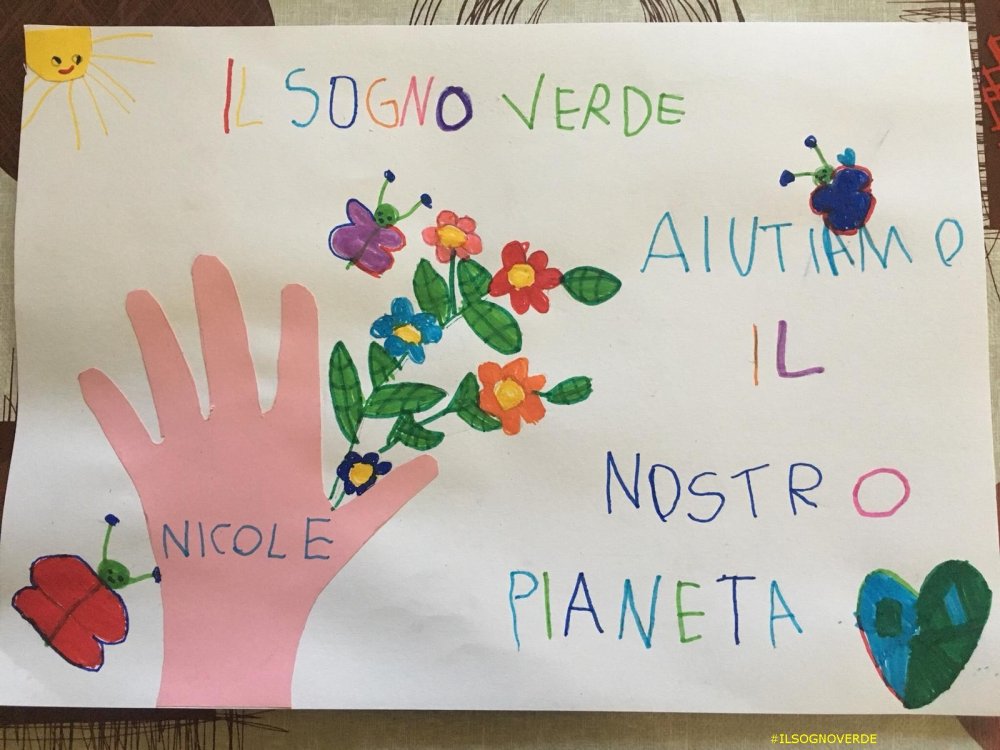 IL SOGNO VERDE
AIUTIAMO
IL
NOSTRO
PIANETA
NICOLE
#ILSOGNOVERDE